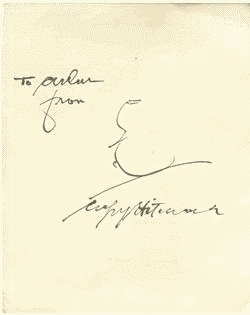 To
from
Alfred Hitchcock